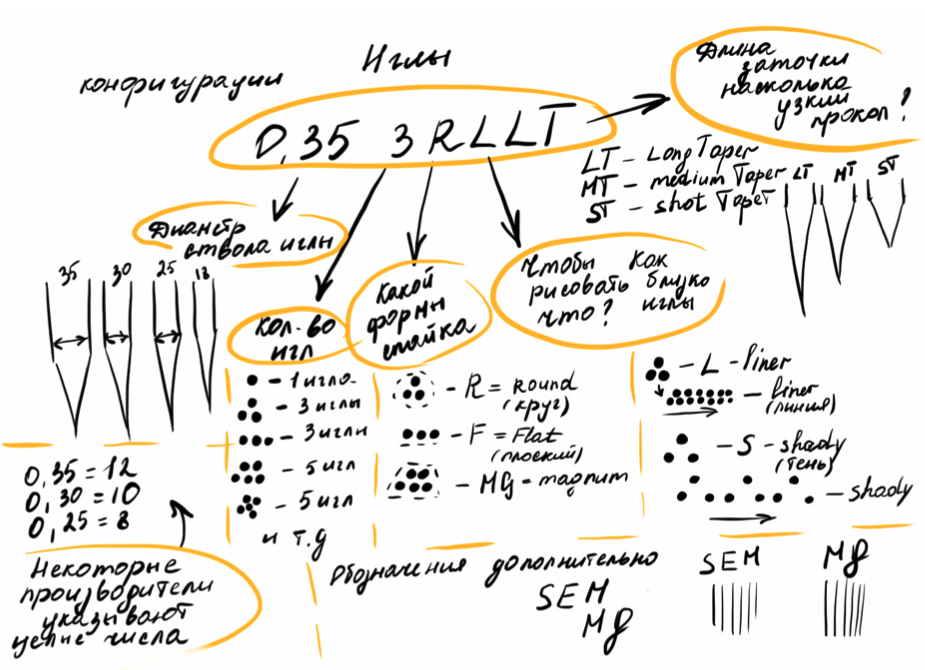 Иглы
конфигурации
0,35 3RLLT
Длина
заточки
насколько
узкий
прокол?
LT - Long Taper
MT - medium Taper
ST - shot Taper
LT MT ST
Диаметр
ствола иглы
35 30 25 18
Кол-во
игл
Какой
формы
спайка
Чтобы как
рисовать близко
что? иглы
• - 1 игла
- 3 иглы
- 3 иглы
- 5 игл
- 5 игл
и т.д
- R = Round
(круг)
- F = Flat
(плоский)
- Mg - magnum
- L - liner
- liner
(линия)
- S - shady
(тень)
- shady
0,35 = 12
0,30 = 10
0,25 = 8
Некоторые
производители
указывают
целые числа
Обозначения дополнительно
SEM
Mg
SEM
Mg